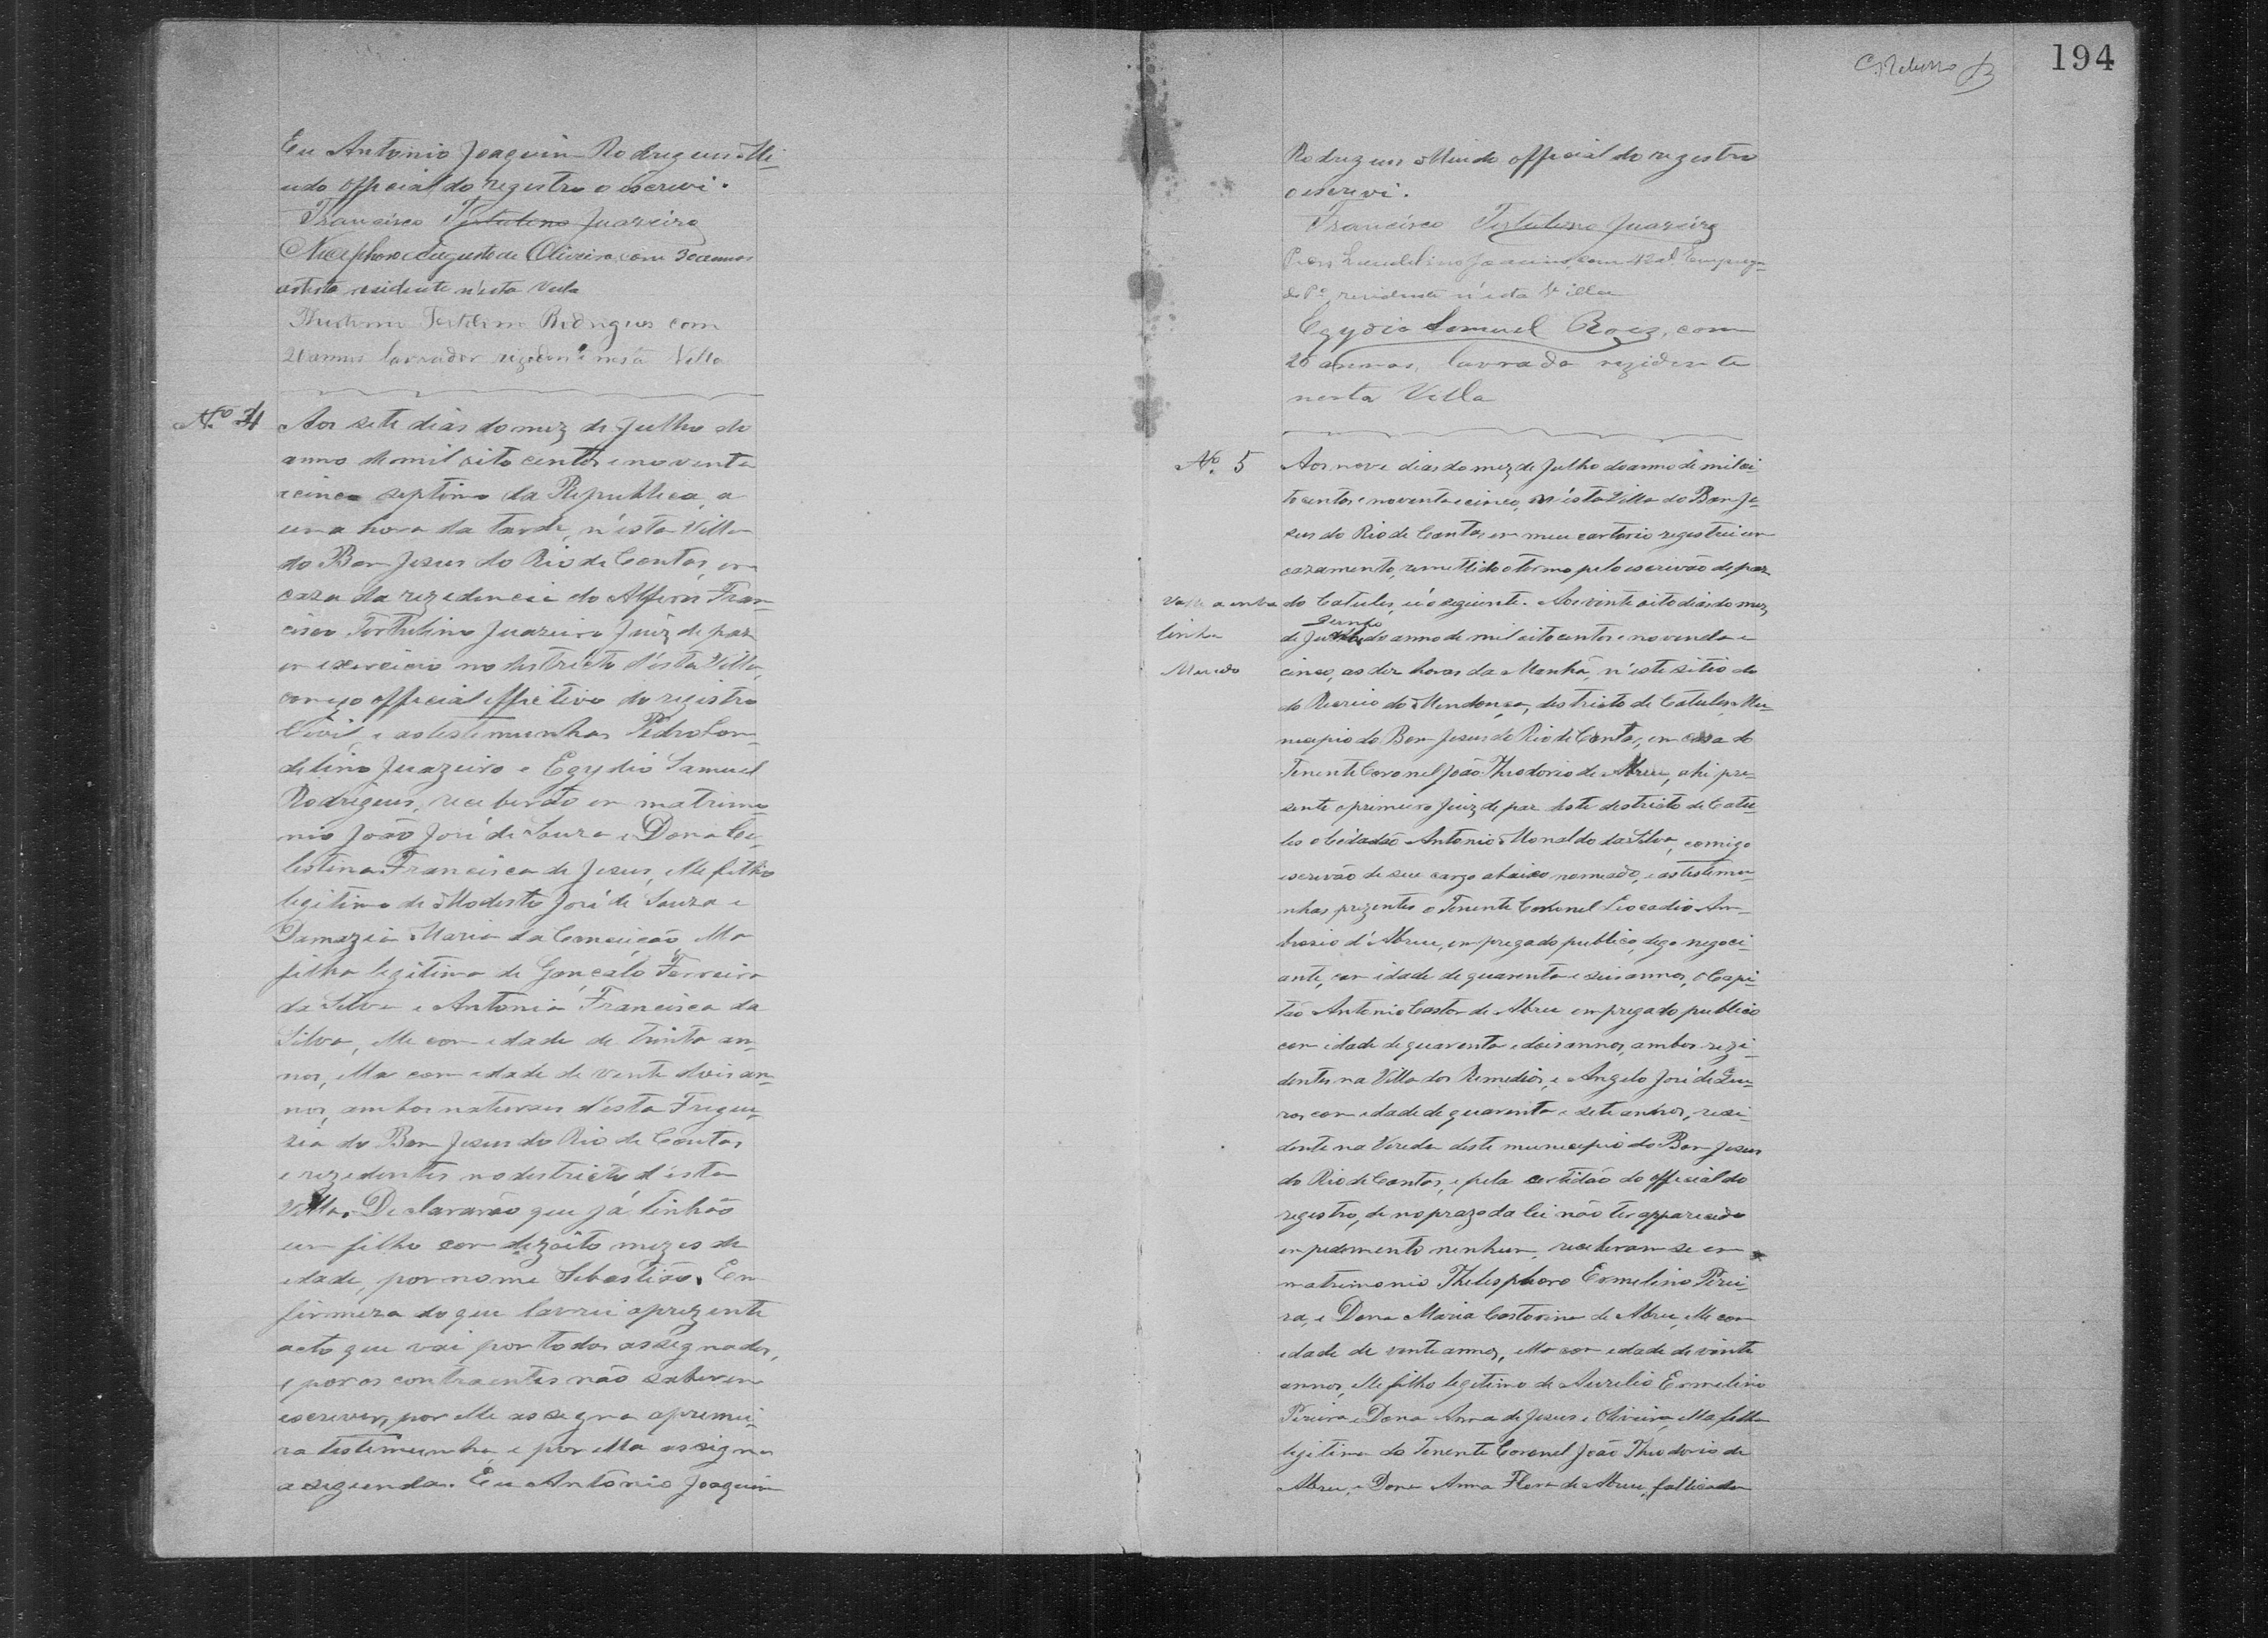 Eu Antonio Joaquim Rodrigues Mi-
udo official do registro o escrevi.
Francisco Tertulino Juazeiro
Nicephoro Augusto de Oliveira, com 30 annos
artista residente n'esta Villa
Tertolino Rodrigues com
20 annos lavrador rezidente nesta Villa
Nº 4
Aos sete dias do mez de Julho do
anno de mil oito centos e noventa
e cinco septimo da Republica, a
uma hora da tarde, n'esta Villa
do Bom Jesus do Rio de Contas, em
caza da rezedencia do Alferes Fran-
cisco Tertulino Juazeiro Juiz de paz
em exercicio no destricto d'esta Villa,
comigo official effectivo do registro
Civil, e as testemunhas Pedro Lan-
delino Juazeiro e Egydio Samuel
Rodrigues, receberão em matrimo-
nio João José de Souza e Dona Ce-
lestina Francisca de Jesus, elle filho
legitimo de Modesto José de Souza e
Damazia Maria da Conceição, ella
filha legitima de Gonçalo Ferreira
da Silva e Antonia Francisca da
Silva, elle com edade de trinta an-
nos, ella com edade de vente dois an-
nos, ambos naturaes d'esta Fregue-
zia do Bom Jesus do Rio de Contas
e rezedentes no destricto d'esta
Villa. Declararão que já tinhão
um filho com dezoito mezes de
edade, por nome Sebastião. Em
firmeza do que lavrei o prezente
acto que vai por todos assegnados,
e por os contraentes não saberem
escrever, por elle assegna a premei-
ra testemunha e por ella assigna
a segunda. Eu Antonio Joaquim
194
Rodrigues Miudo official do registro
o escrevi.
Francisco Tertulino Juazeiro
Pedro Landelino Juazeiro, com 42 a. Emprega-
do Pº, residente n'esta Villa
Egydio Samuel Roiz, com
26 annos, lavrado rezidente
nesta Villa
Nº 5
Aos nove dias do mez de Julho do anno de mil oi-
to centos e noventa e cinco, n'esta Villa do Bom Je-
sus do Rio de Contas em meu cartorio registrei um
cazamento, remettido o termo pelo escrivão de paz
do Catules, é o seguinte. Aos vinte oito dias do mez
Valle a entre
linha
Miudo
Junho
de do anno de mil oito centos e noventa e
cinco, as dez horas da Manhã, n'este sitio do
do Recreio do Mendonça, destricto de Catules Mu-
necipio do Bom Jesus do Rio de Contas, em casa do
Tenente Coronel João Theodorio de Abreu, ahi pre-
sente o primeiro Juiz de paz deste destricto de Catu-
les o Cidadão Antonio Monaldo da Silva, comigo
escrivão de seu cargo abaixo nomeado, e as testemu-
nhas prezentes o Tenente Coronel Leocadio Am-
brosio d'Abreu, empregado publico, digo negoci-
ante, com idade de quarenta e seis annos, o Capi-
tão Antonio Castor de Abreu empregado publico
com idade de quarenta e dois annos, ambos rezi-
dentes na Villa dos Remedios, e Angelo José de Quei-
ros com edade de quarenta e sete annos, resi-
dente na Vereda deste municepio do Bom Jesus
do Rio de Contas, e pela certidão do official do
registro, de no prazo da lei não ter apparecido
empedemento nenhum, receberam-se em
matrimonio Thelesphoro Ermelino Perei-
ra, e Dona Maria Castorina de Abreu, elle com
edade de vinte annos, ella com edade de vinte
annos, elle filho legetimo de Aurelio Ermelino
Pereira e Dona Anna de Jesus e Oliveira, ella filha
legitima do Tenente Coronel João Theodorio de
Abreu, e Dona Anna Flora de Abreu, fallicida